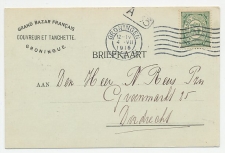 GRAND BAZAR FRANÇAIS
COUVREUR ET TANCHETTE.
GRONINGUE.
GRONINGEN
1916
BRIEFKAART
Aan
Den Heer N. Rees Pzn
Groenmarkt 25
Dordrecht